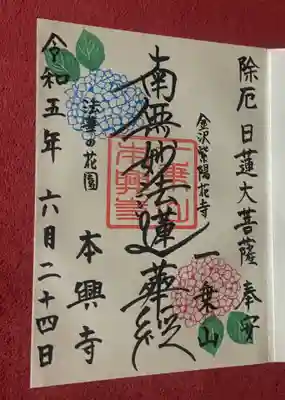 除厄日蓮大菩薩奉安
金沢紫陽花寺
一乗山
南無妙法蓮華経
法華の花園
本興寺
令和五年六月二十四日